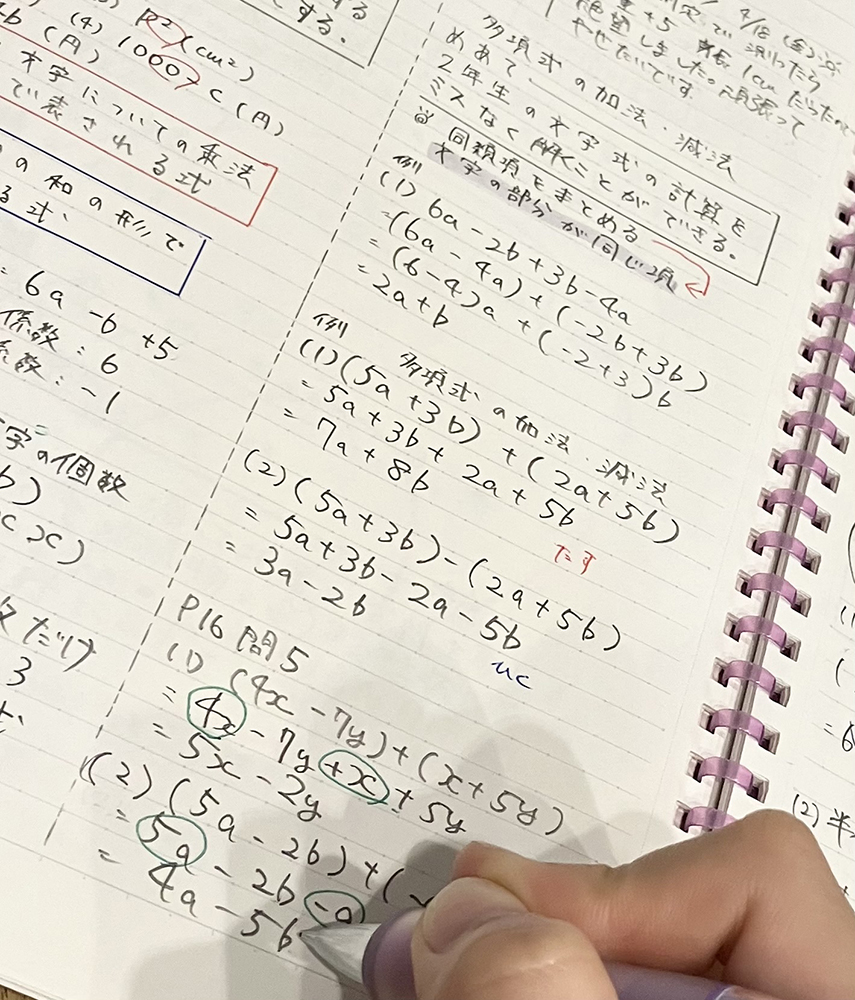 (4)
R²(cm²)
1000πc(円)
(円)
文字についての乗法
で表される式
の和の形で
る式.
= 6a -b +5
係数:6
係数:-1
字の個数
b)
xcx)
数だけ
3
4/18(金)
1cm
絶望しました。頑張って
やせたいです
多項式の加法・減法
めあて
2年生の文字式の計算を
ミスなく解くことができる。
同類項をまとめる
文字の部分が同じ項
例
(1) 6a-2b+3b-4a
=(6a-4a)+(-2b+3b)
=(6-4)a+(-2+3)b
=2a+b
例 多項式の加法・減法
(1)(5a+3b)+(2a+5b)
=5a+3b+2a+5b
=7a+8b
たす
(2)(5a+3b)-(2a+5b)
=5a+3b-2a-5b
=3a-2b
ひく
P16 問5
(1) (4x-7y)+(x+5y)
=4x-7y+x+5y
=5x-2y
(2)(5a-2b)+(-
=5a-2b-a
=4a-5b
(1
(-
=6
(2)半